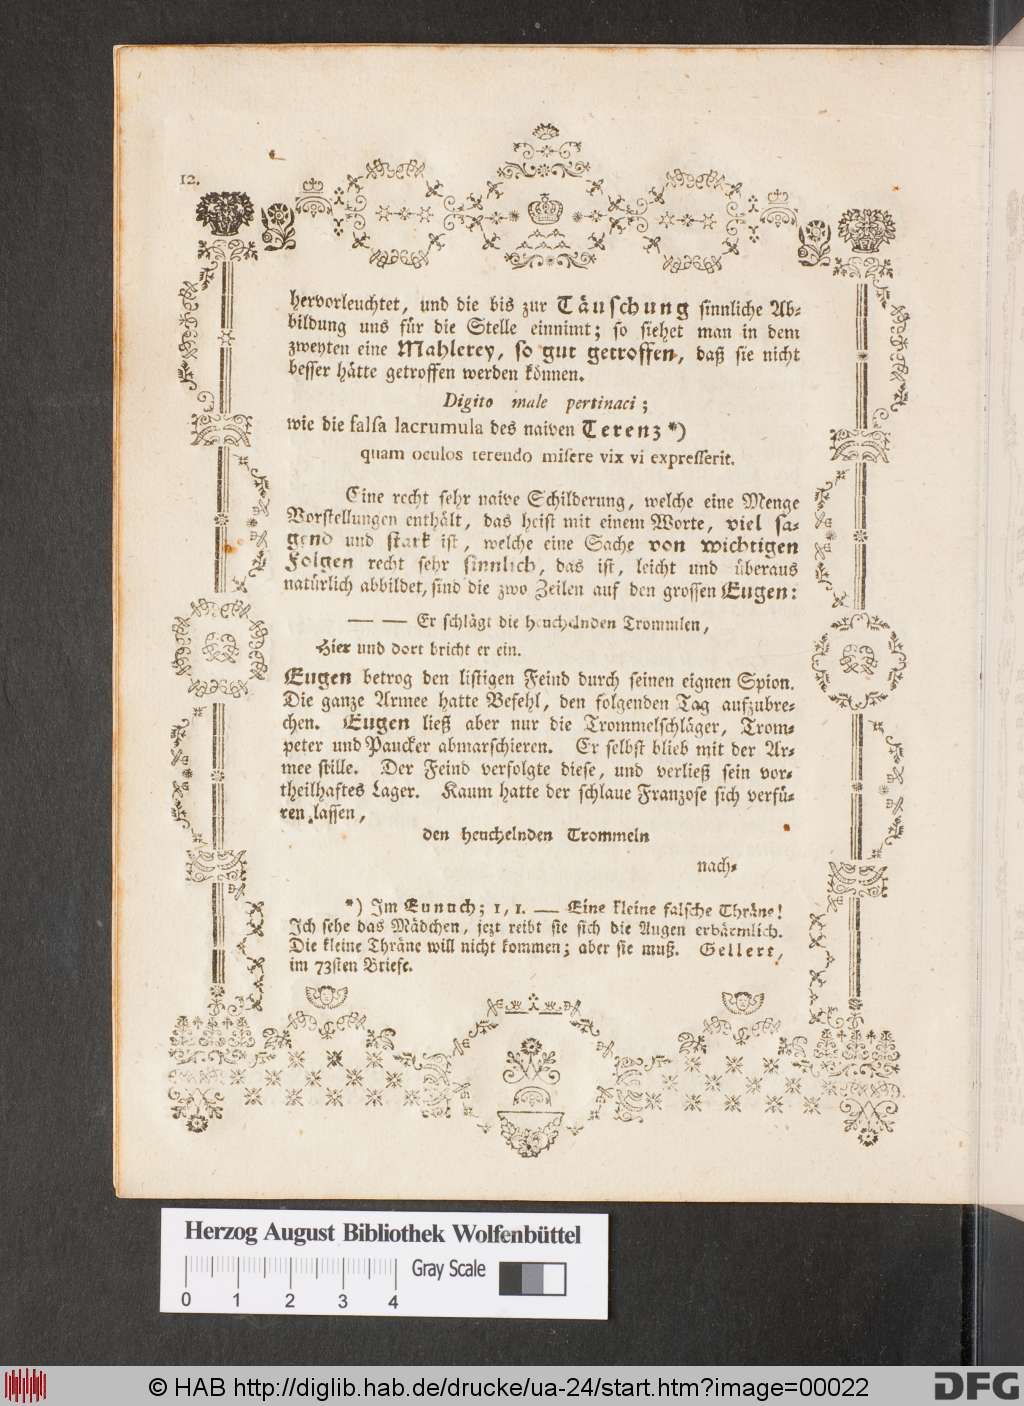 12.
hervorleuchtet, und die bis zur Täuschung sinnliche Ab-
bildung uns für die Stelle einnimt; so siehet man in dem
zweyten eine Mahlerey, so gut getroffen, daß sie nicht
besser hätte getroffen werden können.
Digito male pertinaci;
wie die falsa lacrumula des naiven Terenz *)
quam oculos terendo misere vix vi expresserit.
Eine recht sehr naive Schilderung, welche eine Menge
Vorstellungen enthält, das heist mit einem Worte, viel sa-
gend und stark ist, welche eine Sache von wichtigen
Folgen recht sehr sinnlich, das ist, leicht und überaus
natürlich abbildet, sind die zwo Zeilen auf den grossen Eugen:
— — Er schlägt die heuchelnden Trommlen,
Hier und dort bricht er ein.
Eugen betrog den listigen Feind durch seinen eignen Spion.
Die ganze Armee hatte Befehl, den folgenden Tag aufzubre-
chen. Eugen ließ aber nur die Trommelschläger, Trom-
peter und Paucker abmarschieren. Er selbst blieb mit der Ar-
mee stille. Der Feind verfolgte diese, und verließ sein vor-
theilhaftes Lager. Kaum hatte der schlaue Franzose sich verfü-
ren lassen,
den heuchelnden Trommeln
nach-
*) Im Eunuch; 1, 1. — Eine kleine falsche Thräne!
Ich sehe das Mädchen, jezt reibt sie sich die Augen erbärmlich.
Die kleine Thräne will nicht kommen; aber sie muß. Gellert,
im 73sten Briefe.
Herzog August Bibliothek Wolfenbüttel
Gray Scale
0 1 2 3 4
© HAB http://diglib.hab.de/drucke/ua-24/start.htm?image=00022
DFG